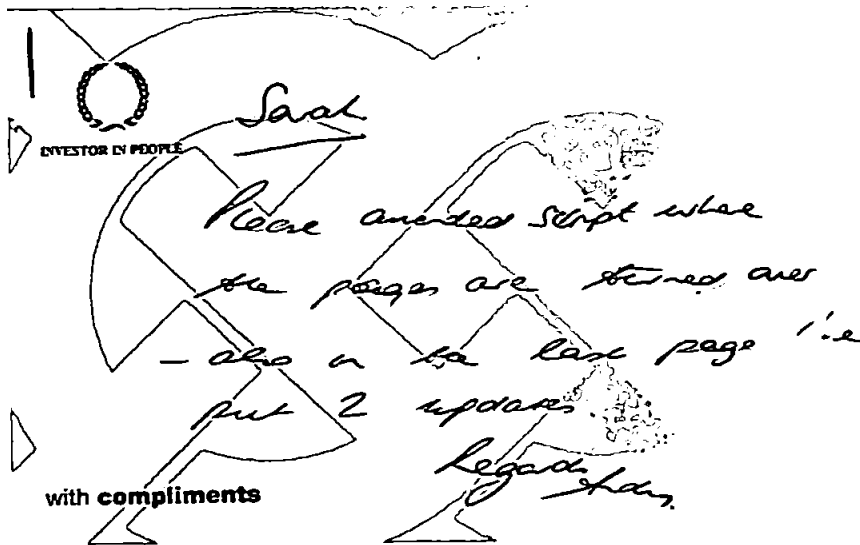 Sarah
INVESTOR IN PEOPLE
Please amended script where
the pages are turned over
- also on the last page i.e
put 2 updates.
Regards
with compliments